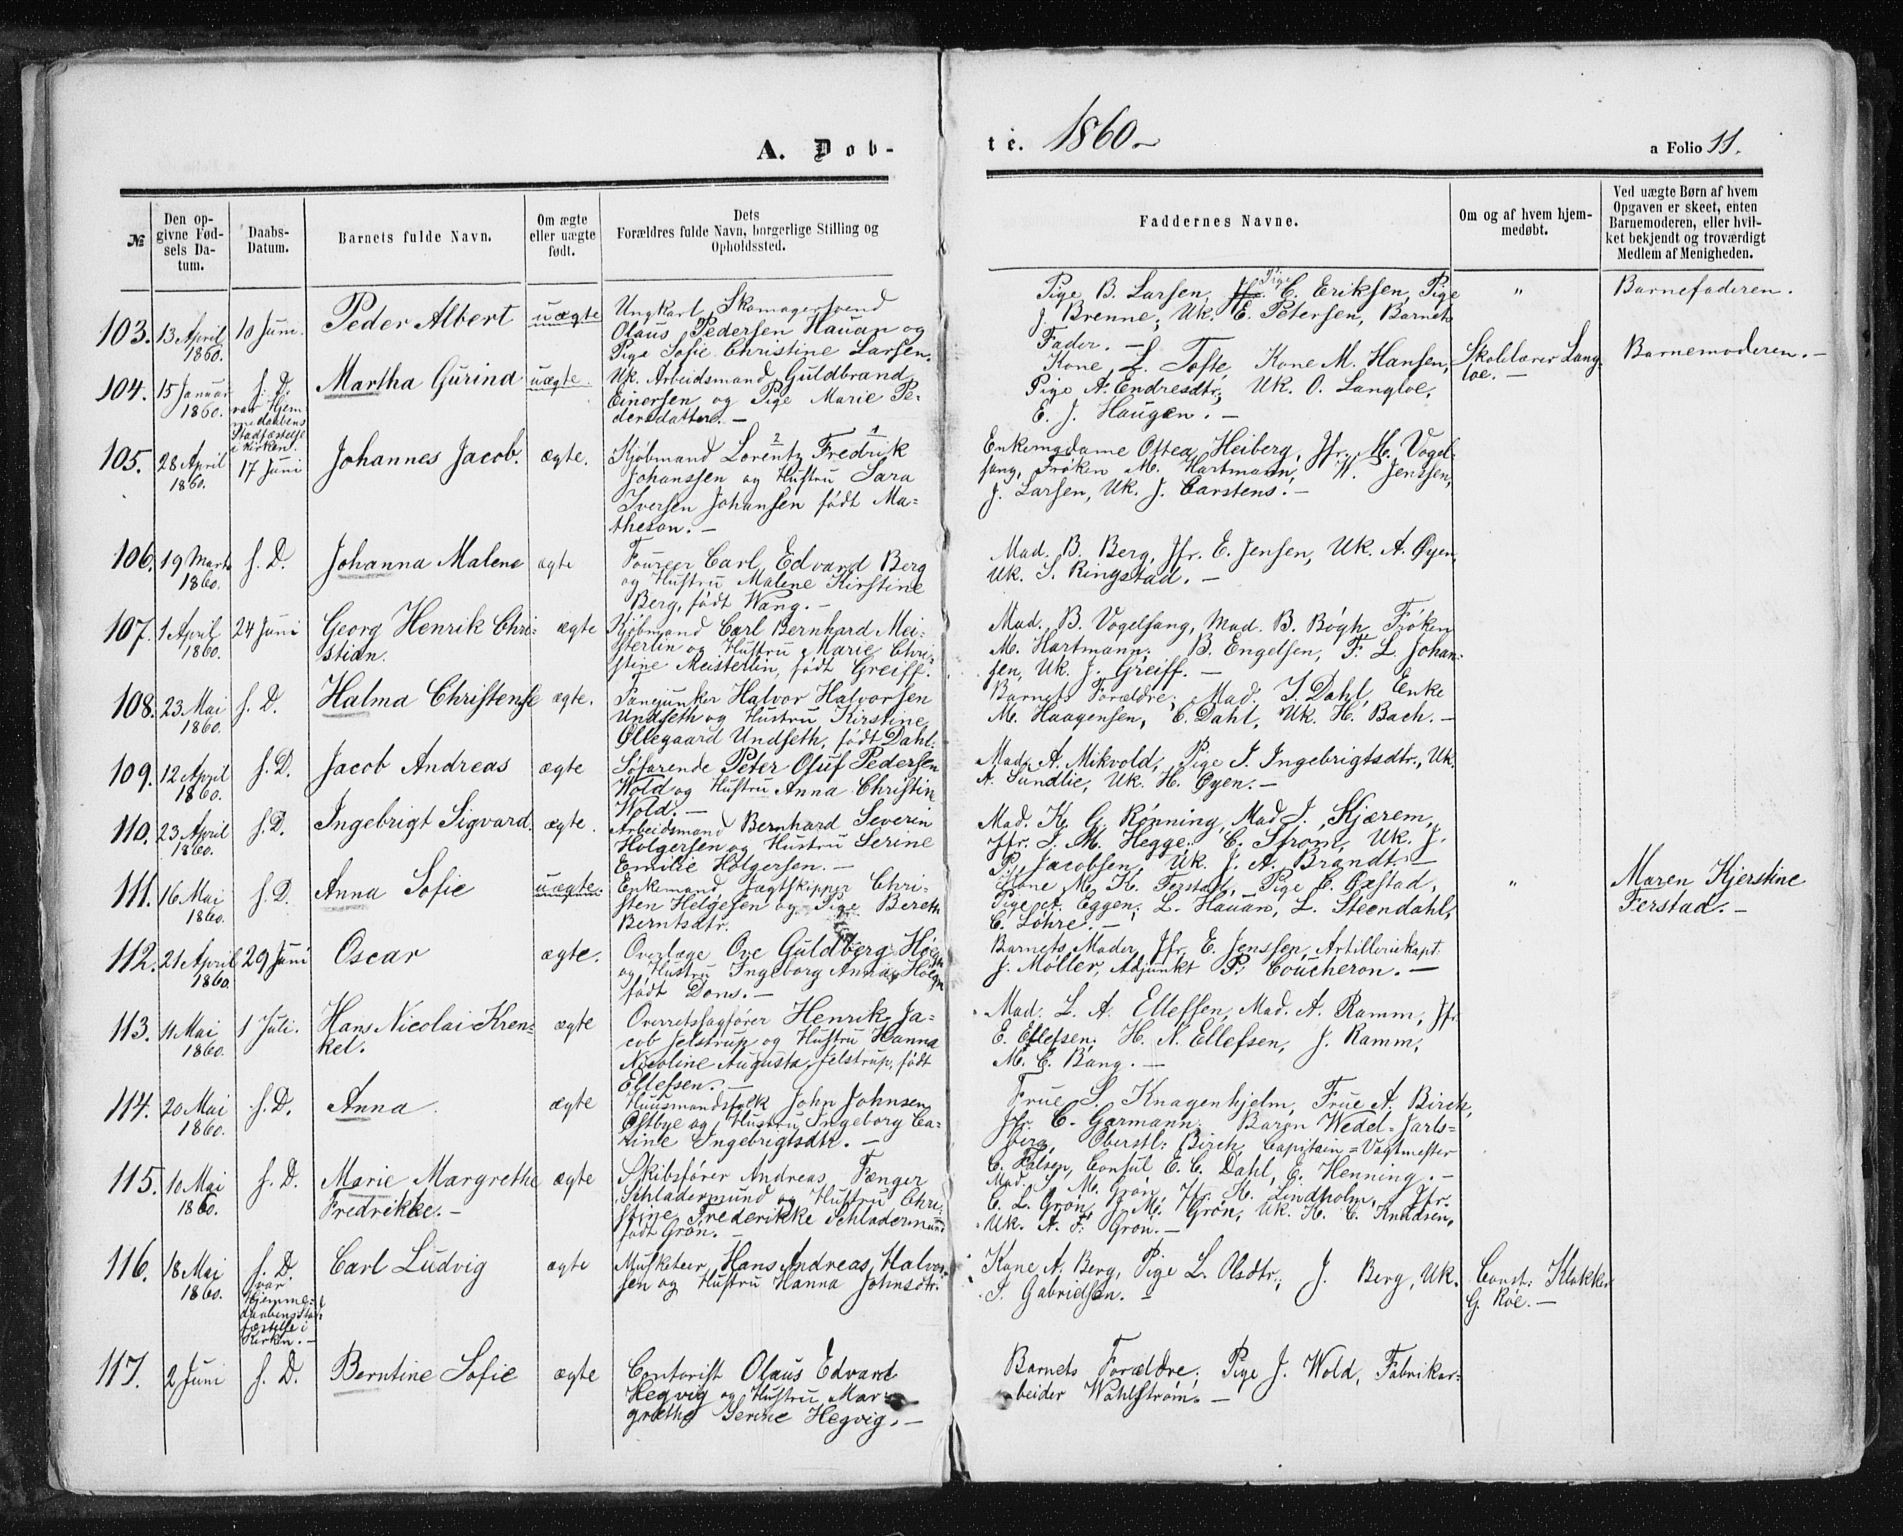 A. Dob-
te. 1860.-
a Folio 11.
№
Den op-
givne Fød-
sels Da-
tum.
Daabs-
Datum.
Barnets fulde Navn.
Om ægte
eller uægte
født.
Dets
Forældres fulde Navn, borgerlige Stilling og
Opholdssted.
Faddernes Navne.
Om og af hvem hjem-
medøbt.
Ved uægte Børn af hvem
Opgaven er skeet, enten
Barnemoderen, eller hvil-
ket bekjendt og troværdigt
Medlem af Menigheden.
103. 13 April
1860.
10 Juni.
Peder Albert
uægte
Ungkarl, Skomagersvend
Olaus Pedersen Hauan og
Pige Sofie Christine Larsen.
Pige B. Larsen, Pige C. Eriksen, Pige
J. Brenne, Uk. E. Petersen, Barnets
Fader. -
"
Barnefaderen.
104. 15 Januar
1860.
s. D.
var Hjem-
medaabens
Stadfæstelse
i Kirken.
Martha Gurina
uægte.
Uk. Arbeidsmand Guldbrand
Einersen og Pige Marie Pe-
dersdatter. -
Kone L. Tofte, Kone M. Hansen,
Pige A. Endresdtr., Uk. O. Langloe,
E. J. Haugen. -
Skolelærer Lang-
loe. -
Barnemoderen. -
105. 28 April
1860.
17 Juni
Johannes Jacob.
ægte.
Kjøbmand Lorentz 2 Fredrik 1
Johanssen og Hustru Sara
Iversen Johansen født Ma-
theson. -
Enkemadame Ostea Heiberg, Jfr. M. Vogel-
sang, Frøken M. Hartmann, W. Jenssen,
J. Larsen, Uk. J. Carstens. -
106. 19 Marts
1860.
s. D.
Johanna Malene
ægte
Foureer Carl Edvard Berg
og Hustru Malene Kirstine
Berg, født Wang. -
Mad. B. Berg, Jfr. E. Jensen, Uk. A. Øyen,
Uk. S. Ringstad. -
107. 1 April
1860.
24 Juni
Georg Henrik Chri-
stian.
ægte
Kjøbmand Carl Bernhard Mei-
sterlin og Hustru Marie Chri-
stine Meisterlin, født Greiff.
Mad. B. Vogelsang, Mad. B. Bøgh, Frøken
M. Hartmann. B. Engelsen, F. L. Johan-
sen, Uk. J. Greiff. -
108. 23. Mai
1860.
s. D.
Halma Christense
ægte.
Fanejunker Halvor Halvorsen
Undseth og Hustru Kirstine
Øllegaard Undseth, født Dahl.
Barnets Forældre, Mad. I. Dahl, Enke
M. Haagensen, C. Dahl, Uk. H. Bach. -
109. 12 April
1860.
s. D.
Jacob Andreas
ægte
Søfarende Peter Oluf Pedersen
Wold og Hustru Anna Christine
Wold. -
Mad. A. Mikvold, Pige I. Ingebrigtsdtr., Uk.
A. Sundlie, Uk. H. Øyen. -
110. 23 April
1860.
s. D.
Ingebrigt Sigvard.
ægte.
Arbeidsmand Bernhard Severin
Holgersen og Hustru Serine
Emilie Holgersen. -
Mad. K. G. Rønning, Mad J. Skjærem,
Jfr. I. M. Hegge. C. Strøm, Uk. J.
P. Jacobsen, Uk. J. A. Brandt. -
111. 16 Mai
1860.
s. D.
Anna Sofie
uægte.
Enkemand Jægtskipper Chri-
sten Helgesen og Pige Bereth
Berntsdtr.
Kone M. K. Ferstad, Pige C. Øxstad,
Pige A. Eggen. L. Hauan, L. Steendahl,
C. Løhre. -
"
Maren Kjerstine
Ferstad. -
112. 21 April
1860.
29 Juni
Oscar
ægte.
Overlæge Ove Guldberg Høegh
og Hustru Ingeborg Anna Høegh
født Dons. -
Barnets Moder, Jfr. E. Jenssen, Artillerikapt.
J. Møller, Adjunkt P. Coucheron. -
113. 11 Mai
1860.
1 Juli.
Hans Nicolai Kren-
kel.
ægte
Overretssagfører Henrik Ja-
cob Jelstrup og Hustru Hanna
Nicoline Augusta Jelstrup, født
Ellefsen. -
Mad. L. A. Elleffen, Mad. A. Ramm, Jfr.
E. Ellefsen. H. N. Ellefsen, J. Ramm,
M. C. Bang. -
114. 20 Mai
1860.
s. D.
Anna.
ægte
Huusmandsfolk John Johnsen
Østbye og Hustru Ingeborg Ca-
rine Ingebrigtsdtr. -
Frue S. Knagenhjelm, Frue A. Birch,
Jfr. C. Garmann. Baron Wedel-Jarls-
berg, Oberstl. Birch, Capitain-Vagtmester
C. Falsen, Consul E. C. Dahl, C. Henning. -
115. 10 Mai
1860.
s. D.
Marie Margrethe
Fredrikke. -
ægte
Skibsfører Andreas Fænger
Schladermund og Hustru Chri-
stine Frederikke Schladermund
født Grøn. -
Mad. M. Grøn, Jfr. H. Lindholm, Jfr.
C. L. Grøn, J. M. Grøn, Uk. H. C. Knudsen,
Uk. A. F. Grøn. -
116. 18 Mai
1860.
s. D.
var
Hjemme-
daabens Stad-
fæstelse i
Kirken. -
Carl Ludvig
ægte
Musketeer Hans Andreas Halvor-
sen og Hustru Hanna Johnsdtr.
Kone A. Berg, Pige L. Olsdtr., J. Berg, Uk.
S. Gabrielsen. -
Const. Klokker
G. Roe. -
117. 2 Juni
s. D.
Berntine Sofie
ægte
Contorist Olaus Edvard
Hegvig og Hustru Mar-
grethe Serine Hegvig. -
Barnets Forældre, Pige J. Wold, Fabrikar-
beider Wahlstrøm. -